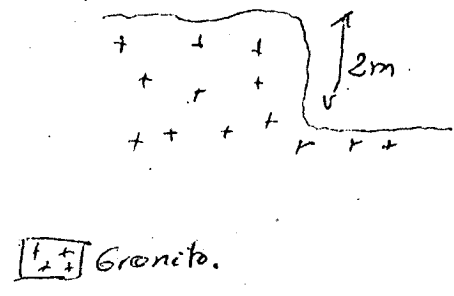 2m
Granito.